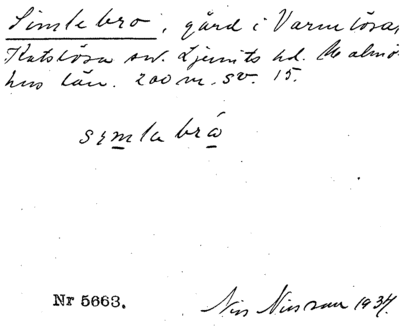 Simlebro, gård i Varmlösa,
Katslösa sn. Ljunits hd. Malmö-
hus län. 200 m. SV. 15.
semlabrå
Nr 5663.
Nils Nilsson 1934.